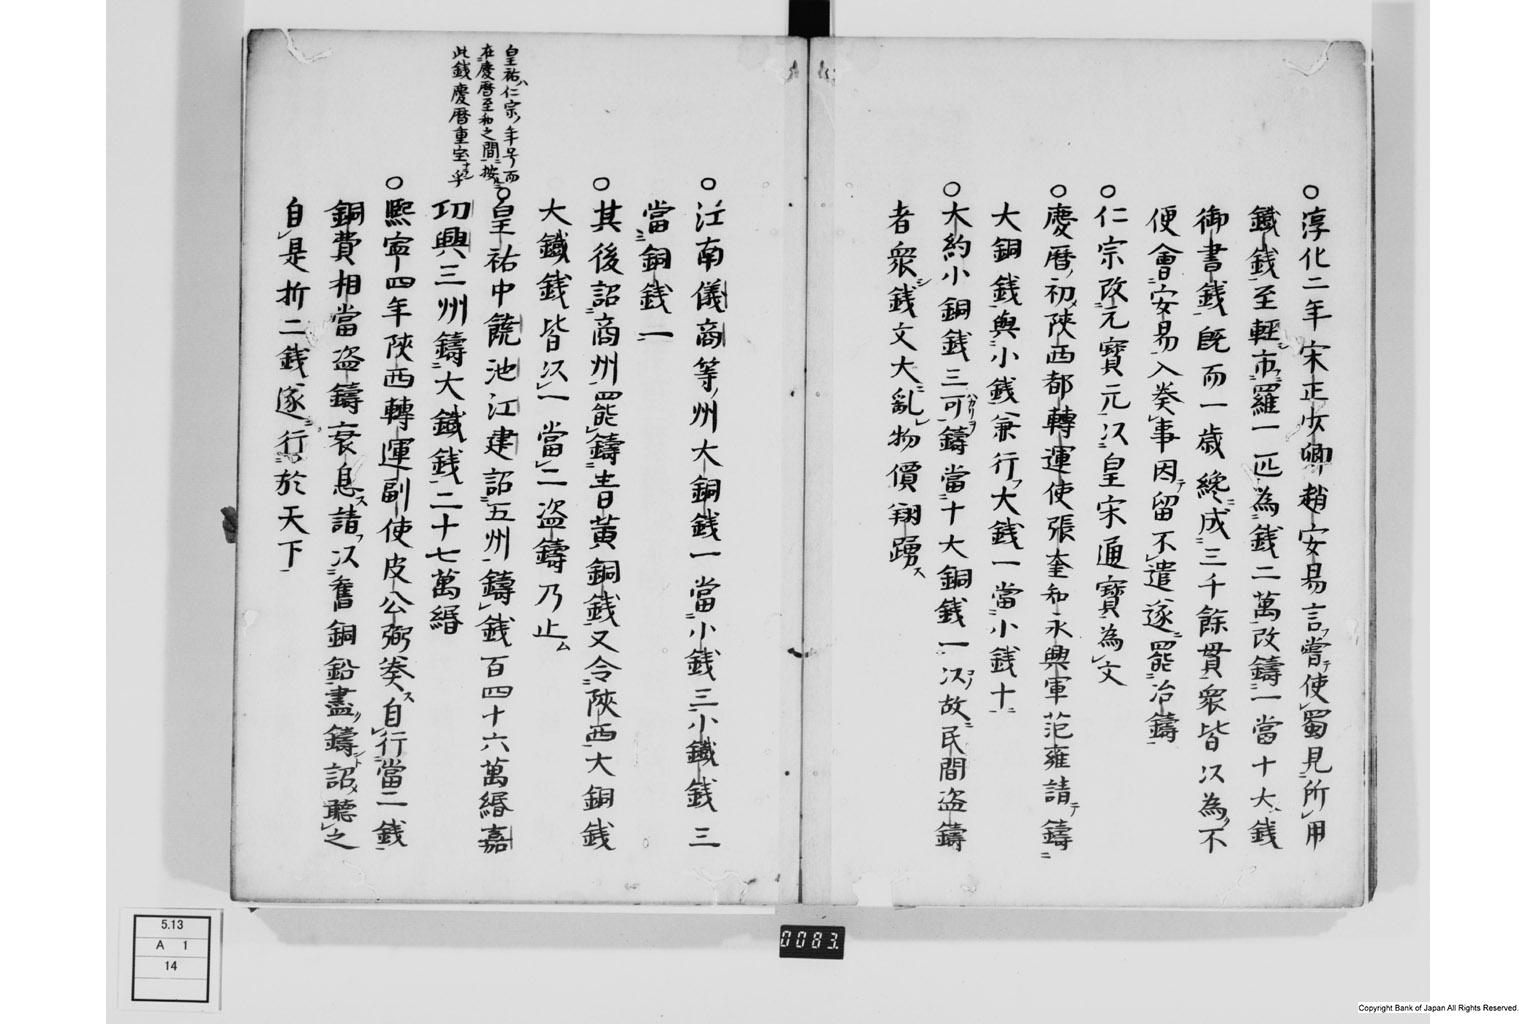 ○淳化二年宋正少卿趙安易言嘗テ使蜀見所用
鐵錢至輕市羅一匹為錢二萬改鑄一當十大錢
御書錢既而一歳纔成三千餘貫衆皆以為不
便會安易入奏事因テ留不遣遂罷冶鑄
○仁宗改元寶元以皇宋通寶為文
○慶曆初陝西都轉運使張奎和永興軍范雍請テ鑄
大銅錢與小錢兼行大錢一當小錢十
○大約小銅錢三可鑄當十大銅錢一以故民間盗鑄
者衆錢文大亂物價翔踴ス
○江南儀商等州大銅錢一當小錢三小鐵錢三
當銅錢一
○其後詔商州罷鑄青黄銅錢又令陝西大銅錢
大鐵錢皆以一當二盗鑄乃止ム
皇祐ハ仁宗ノ年号而
在慶曆至和之間按
此錢慶曆重宝ナル乎
○皇祐中饒池江建詔五州鑄錢百四十六萬緡嘉
卭興三州鑄大鐵錢二十七萬緡
○熙寧四年陝西轉運副使皮公弼奏ス自行當二錢
銅費相當盗鑄衰息ス請フ以舊銅鉛盡鑄詔聽之
自是折二錢遂行於天下
0083.
5.13
A 1
14
Copyright Bank of Japan All Rights Reserved.